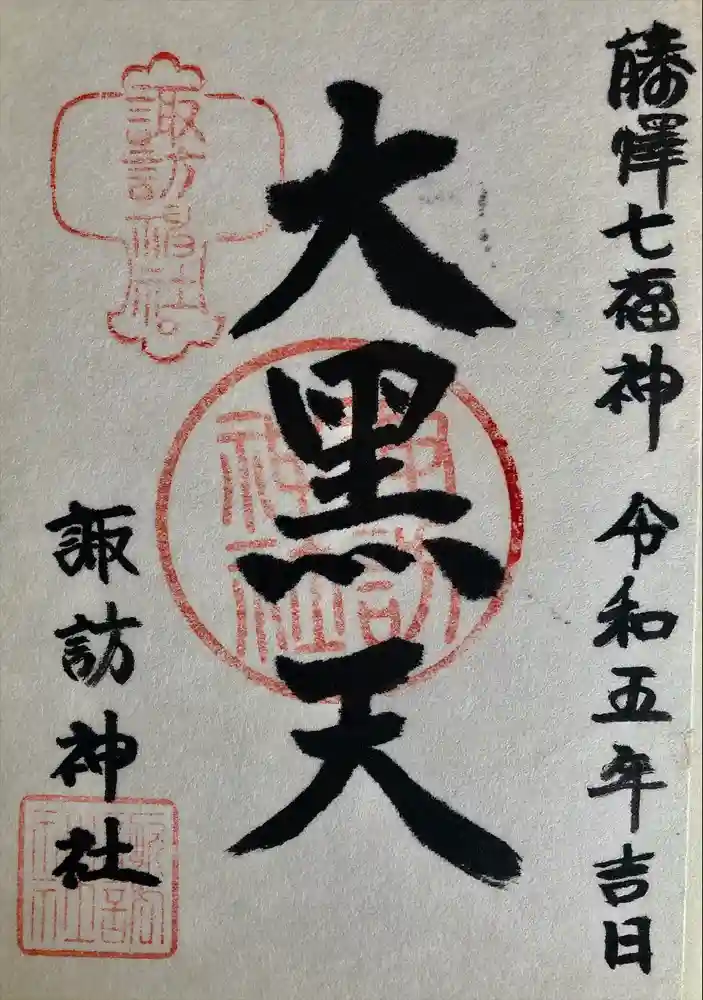 藤澤七福神 令和五年吉日
大黒天
諏訪神社
諏訪神社
諏訪神社
諏訪神社